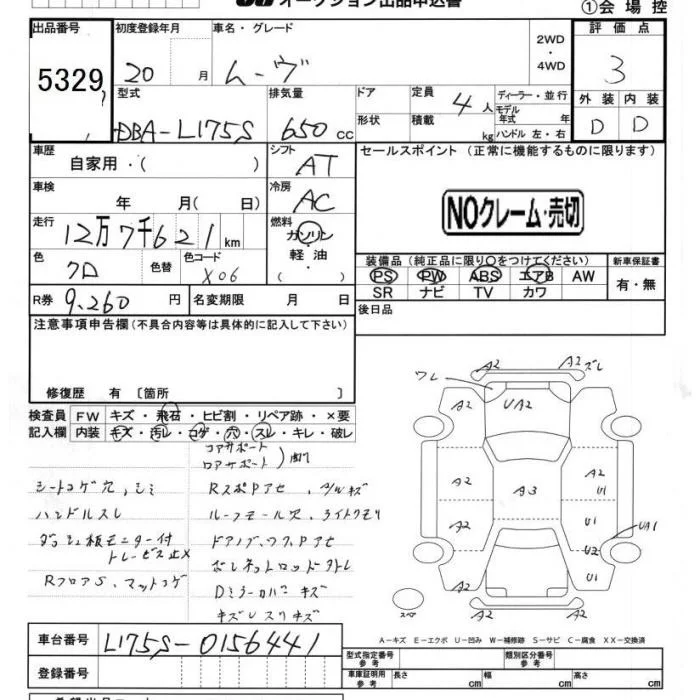 オークション出品申込書
①会場控
出品番号 初度登録年月 車名・グレード 2WD・4WD 評価点
5329 20 月 ムーヴ 3
型式 排気量 ドア 定員 ディーラー・並行 外装 内装
DBA-L175S 650 CC 形状 積載 4人 kg モデル年式 年 ハンドル 左・右 D D
車歴 シフト セールスポイント (正常に機能するものに限ります)
自家用・( ) AT
車検 冷房
年 月( 日) AC
NOクレーム・売切
走行 燃料
12万7千621km ガソリン・軽油・
色 色替 色コード 装備品(純正品に限り○をつけてください) 新車保証書
クロ X06 PS PW ABS エアB AW 有・無
SR ナビ TV カワ
R券 9,260 円 名変期限 月 日 後日品
注意事項申告欄(不具合内容等は具体的に記入して下さい)
修復歴 有 〔箇所 〕
検査員 FW キズ・飛石・ヒビ割・リペア跡・×要
記入欄 内装 キズ・汚レ・コゲ・穴・スレ・キレ・破レ
コアサポート
ロアサポート
シートコゲ穴、シミ
ハンドルスレ ルーフモール穴、ライトクモリ
ダッシュ板モニター付
トレービス止メ
RフロアS、マットコゲ Dミラーカバーキズ
キズUスリキズ
ワレ A2 A2 ズレ
A2 UA2 A2
A2 A3 A2 U1
A2 U1 UA1
U2
A2 U1
A2 A2
スペア
A-キズ E-エクボ U-凹み W-補修跡 S-サビ C-腐食 XX-交換済
車台番号 L175S-0156441 型式指定番号 参考 類別区分番号 参考
登録番号 車庫証明用 参考 長さ cm 幅 cm 高さ cm